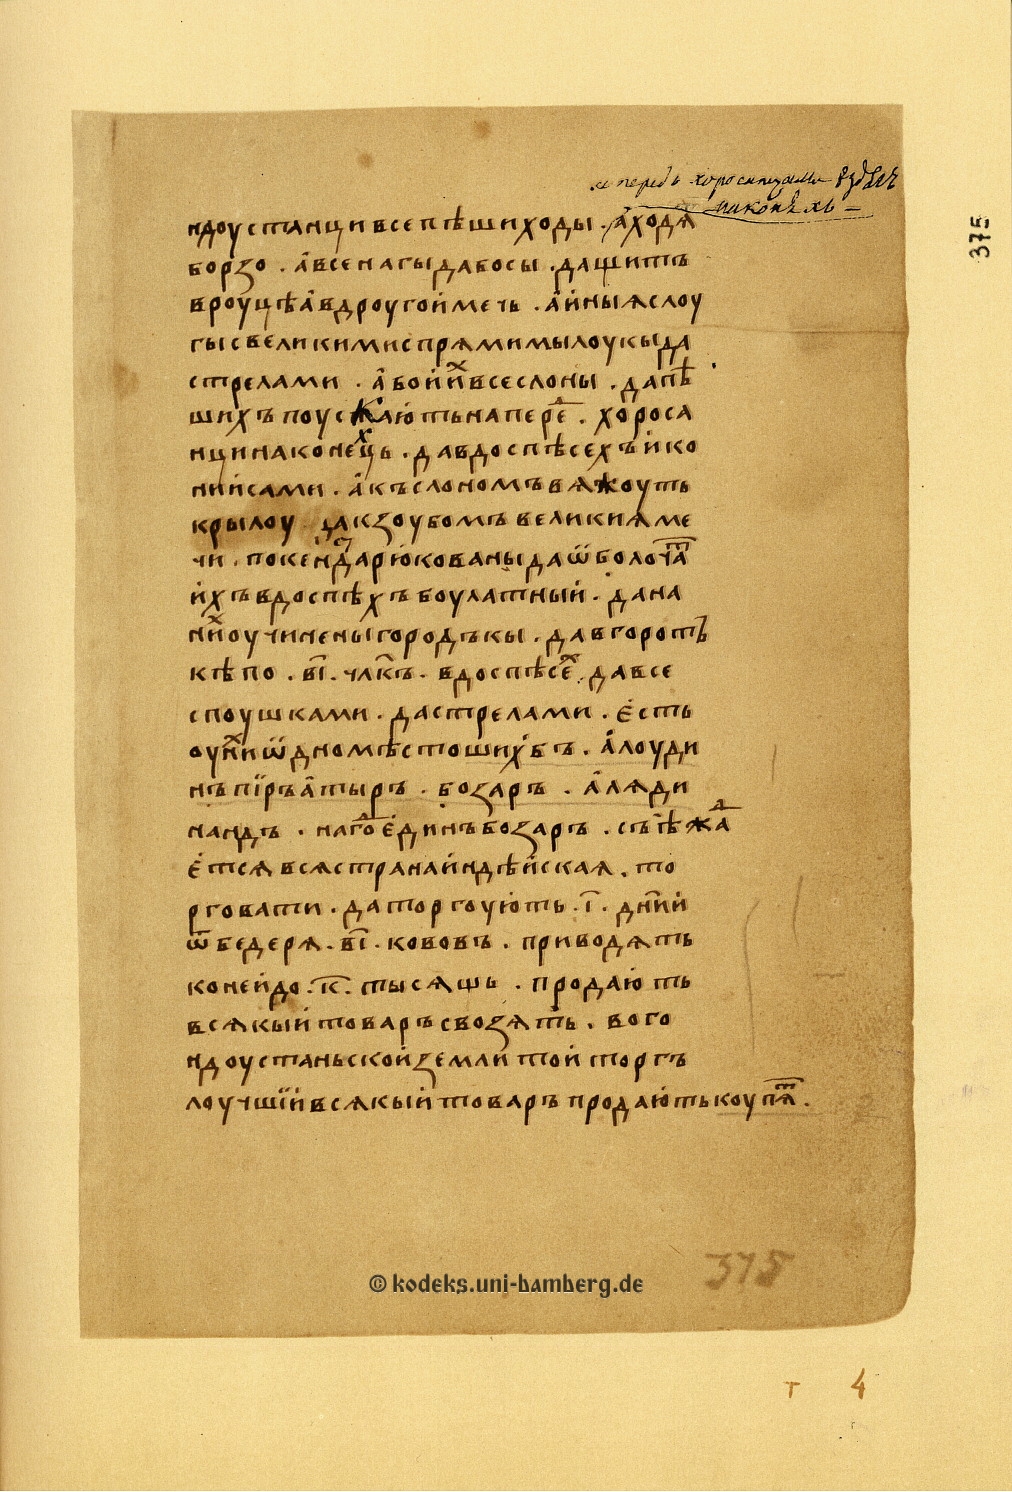 а передъ хоросанцами
на конѣхъ
375
ндоустанцивсепѣшиходы . а҆ходѧ
борзо . а҆всенагыдабосы . дащитъ
вроуцѣа҆вдроугоймечь . а҆йныꙗслоу
гысвеликимиспрꙗмимылоукыда
стрелами . а҆бойи҆ⷯвсеслоны . дапѣ
шихъпоускаютьнапереⷣ . хороса
нцинаконеⷯць . давдоспѣсехъйко
нийсами . а҆къслономъвѧжоуть
крылоу дакзоубомъвеликиꙗме
чи . покендⷩарюкованыдаѿболочаⷮ
йхъвдоспѣхъбоулатный . дана
ниⷯоучиненыгородъкы . давгоротъ
кѣпо . в҃і . члк҃ъ . вдоспѣсеⷯ . давсе
споушками . дастрелами . є҆сть
оуниⷯѿдномѣстошихбъ . а҆лоуди
нъпїръа҆тыръ . бозаръ . а҆лѧди
нандъ . нагоⷣє҆динъбозаръ . съѣжаⷣ
є҆тсѧвсѧстранайндѣйскаꙗ . то
рговати . даторгоують . і҃ . дн҃ий
ѿбедерѧ . в҃і . кововъ . приводѧть
конейдо . к҃ . тысѧщь . продають
всѧкыйтоваръсвозѧть . вого
ндоустаньскойземлитойторгъ
лоучшїйвсѧкыйтоваръпродаютькоупѧⷮ .
© kodeks.uni-bamberg.de
375
т 4